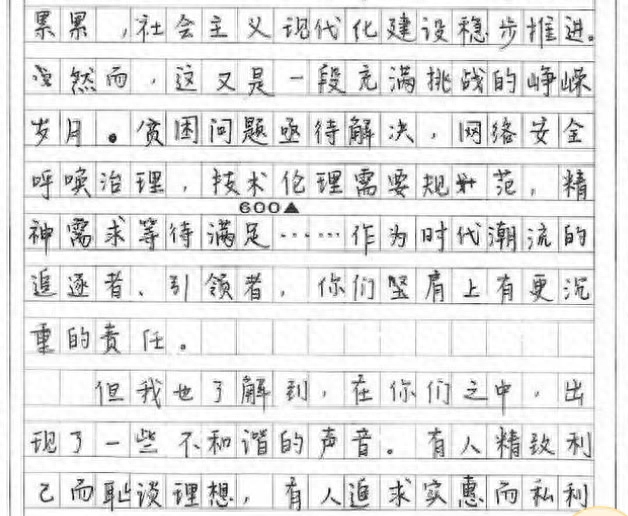 累累,社会主义现代化建设稳步推进。
然而,这又是一段充满挑战的峥嵘
岁月。贫困问题亟待解决,网络安全
呼唤治理,技术伦理需要规范,精
600▲
神需求等待满足……作为时代潮流的
追逐者、引领者,你们坚肩上有更沉
重的责任。
但我也了解到,在你们之中,出
现了一些不和谐的声音。有人精致利
己而耻谈理想,有人追求实惠而私利